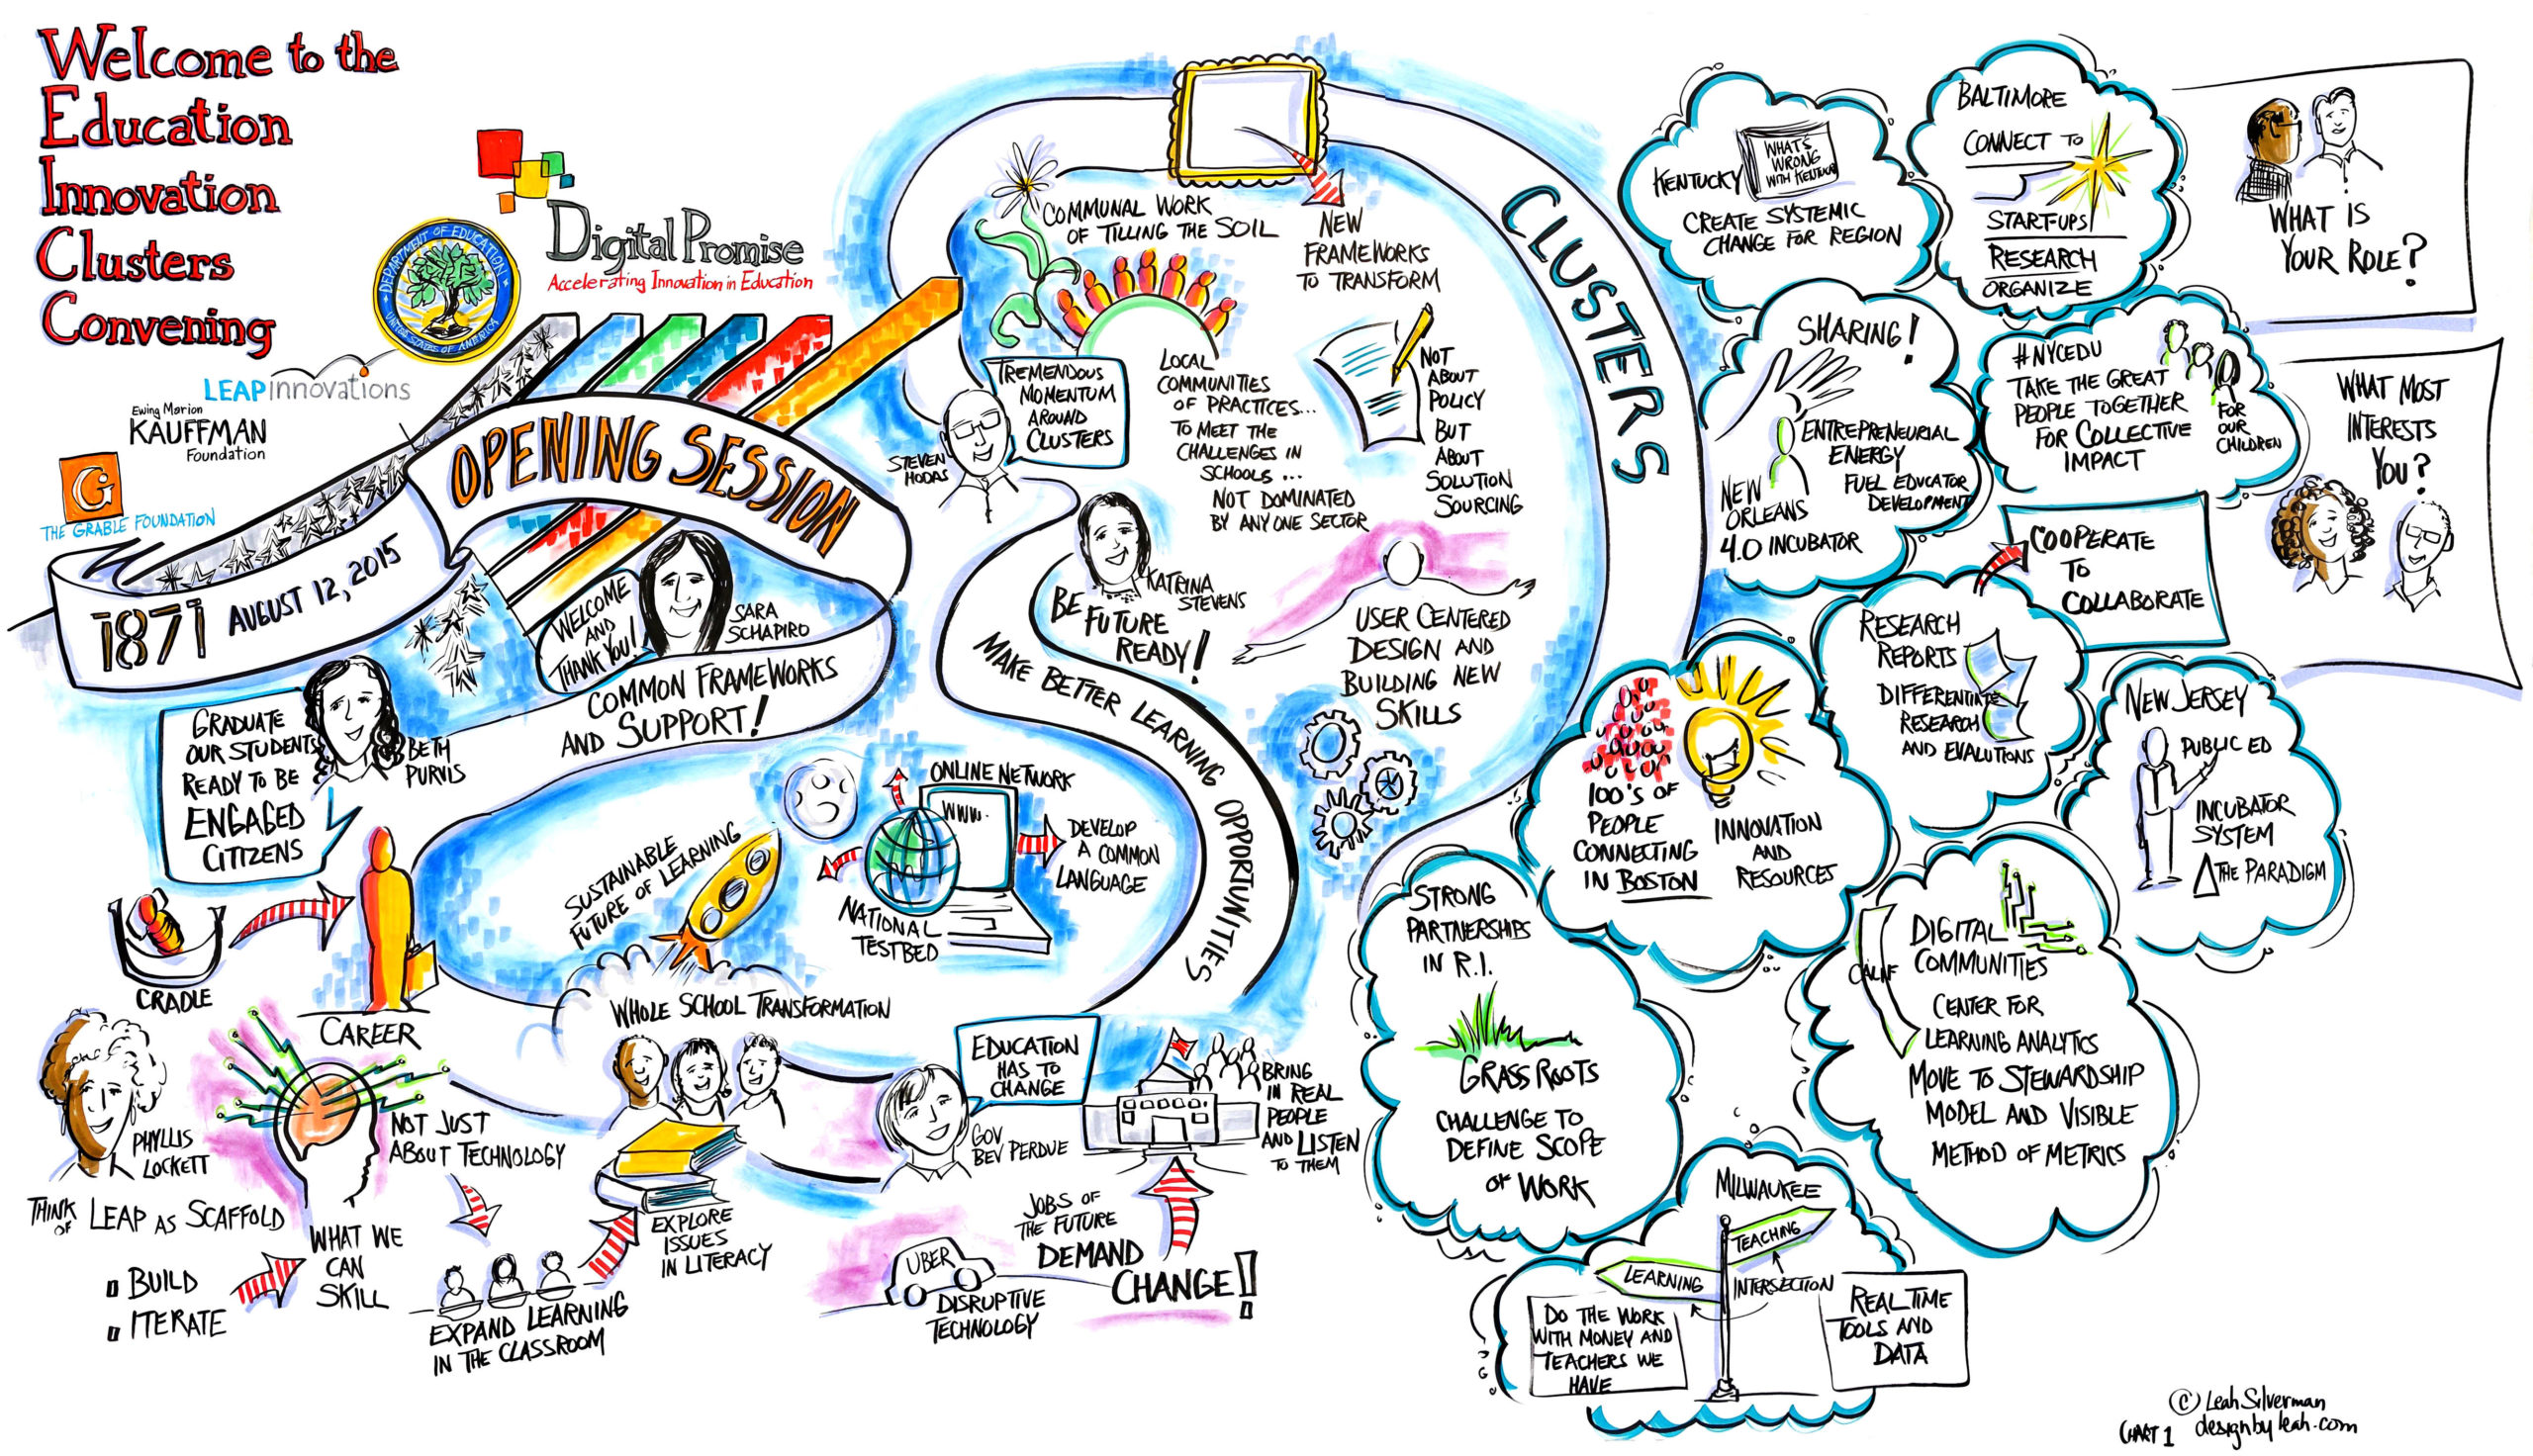 Welcome to the
Education
Innovation
Clusters
Convening
Digital Promise
Accelerating Innovation in Education
DEPARTMENT OF EDUCATION
UNITED STATES OF AMERICA
LEAP innovations
Ewing Marion
KAUFFMAN
Foundation
G
THE GRABLE FOUNDATION
1871 AUGUST 12, 2015
OPENING SESSION
WELCOME
AND
THANK YOU!
SARA
SCHAPIRO
COMMON FRAMEWORKS
AND SUPPORT!
GRADUATE
OUR STUDENTS
READY TO BE
ENGAGED
CITIZENS
BETH
PURVIS
CRADLE
CAREER
PHYLLIS
LOCKETT
THINK
OF LEAP AS SCAFFOLD
BUILD
ITERATE
WHAT WE
CAN
SKILL
NOT JUST
ABOUT TECHNOLOGY
EXPAND LEARNING
IN THE CLASSROOM
EXPLORE
ISSUES
IN LITERACY
WHOLE SCHOOL TRANSFORMATION
SUSTAINABLE
FUTURE OF LEARNING
ONLINE NETWORK
WWW.
NATIONAL
TESTBED
DEVELOP
A COMMON
LANGUAGE
EDUCATION
HAS TO
CHANGE
GOV
BEV PERDUE
UBER
DISRUPTIVE
TECHNOLOGY
JOBS OF
THE FUTURE
DEMAND
CHANGE!
BRING
IN REAL
PEOPLE
AND LISTEN
TO THEM
MAKE BETTER LEARNING OPPORTUNITIES
STEVEN
HODAS
TREMENDOUS
MOMENTUM
AROUND
CLUSTERS
COMMUNAL WORK
OF TILLING THE SOIL
LOCAL
COMMUNITIES
OF PRACTICES...
TO MEET THE
CHALLENGES IN
SCHOOLS ...
NOT DOMINATED
BY ANY ONE SECTOR
NEW
FRAMEWORKS
TO TRANSFORM
NOT
ABOUT
POLICY
BUT
ABOUT
SOLUTION
SOURCING
KATRINA
STEVENS
BE
FUTURE
READY!
USER CENTERED
DESIGN AND
BUILDING NEW
SKILLS
CLUSTERS
KENTUCKY
WHAT'S
WRONG
WITH KENTUCKY
CREATE SYSTEMIC
CHANGE FOR REGION
BALTIMORE
CONNECT TO
START-UPS
RESEARCH
ORGANIZE
WHAT IS
YOUR ROLE?
SHARING!
ENTREPRENEURIAL
ENERGY
FUEL EDUCATOR
DEVELOPMENT
NEW
ORLEANS
4.0 INCUBATOR
#NYCEDU
TAKE THE GREAT
PEOPLE TOGETHER
FOR COLLECTIVE
IMPACT
FOR
OUR
CHILDREN
WHAT MOST
INTERESTS
YOU?
COOPERATE
TO
COLLABORATE
RESEARCH
REPORTS
DIFFERENTIATE
RESEARCH
AND EVALUTIONS
100'S OF
PEOPLE
CONNECTING
IN BOSTON
INNOVATION
AND
RESOURCES
NEW JERSEY
PUBLIC ED
INCUBATOR
SYSTEM
Δ THE PARADIGM
STRONG
PARTNERSHIPS
IN R.I.
GRASS ROOTS
CHALLENGE TO
DEFINE SCOPE
OF WORK
CALIF
DIGITAL
COMMUNITIES
CENTER FOR
LEARNING ANALYTICS
MOVE TO STEWARDSHIP
MODEL AND VISIBLE
METHOD OF METRICS
MILWAUKEE
TEACHING
LEARNING
INTERSECTION
DO THE WORK
WITH MONEY AND
TEACHERS WE
HAVE
REAL TIME
TOOLS AND
DATA
© Leah Silverman
designbyleah.com
CHART 1